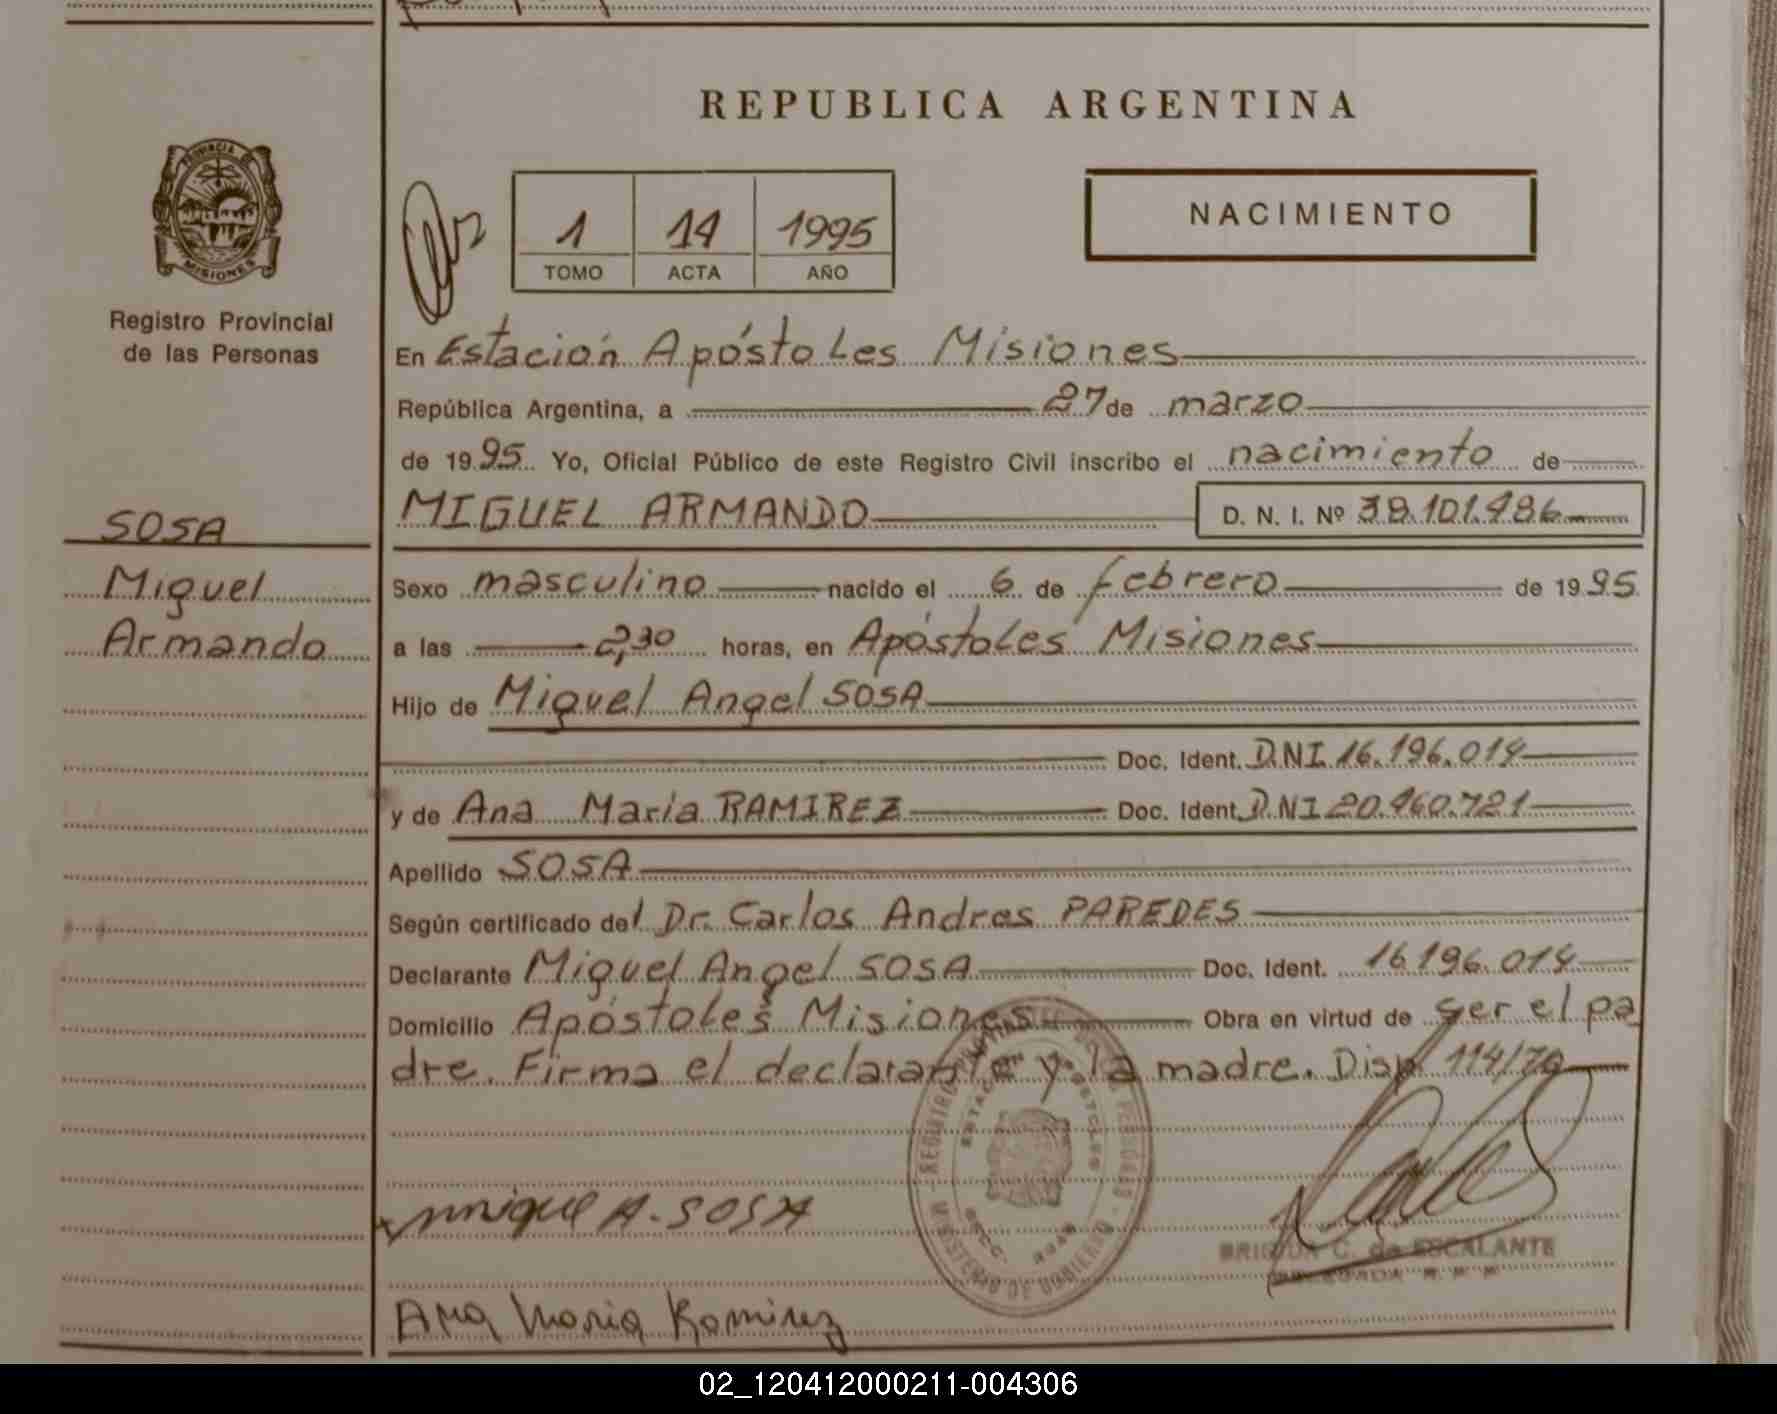 REPUBLICA ARGENTINA
PROVINCIA DE
MISIONES
Registro Provincial
de las Personas
1 14 1995
TOMO ACTA AÑO
NACIMIENTO
En Estación Apóstoles Misiones
República Argentina, a 27 de marzo
de 1995 Yo, Oficial Público de este Registro Civil inscribo el nacimiento de
MIGUEL ARMANDO D. N. I. Nº
SOSA
Miguel
Armando
Sexo masculino nacido el 6 de febrero de 1995
a las 2,30 horas, en Apóstoles Misiones
Hijo de Miguel Angel SOSA
Doc. Ident. DNI 16.196.014
y de Ana Maria RAMIREZ Doc. Ident. DNI
Apellido SOSA
Según certificado del Dr. Carlos Andres PAREDES
Declarante Miguel Angel SOSA Doc. Ident. 16196.014
Domicilio Apóstoles Misiones Obra en virtud de ser el pa
dre. Firma el declarante y la madre. Disp. 114/70
Miguel A. SOSA
BRIGIDA C. de ESCALANTE
DELEGADA
Ana Maria Ramirez
02_120412000211-004306